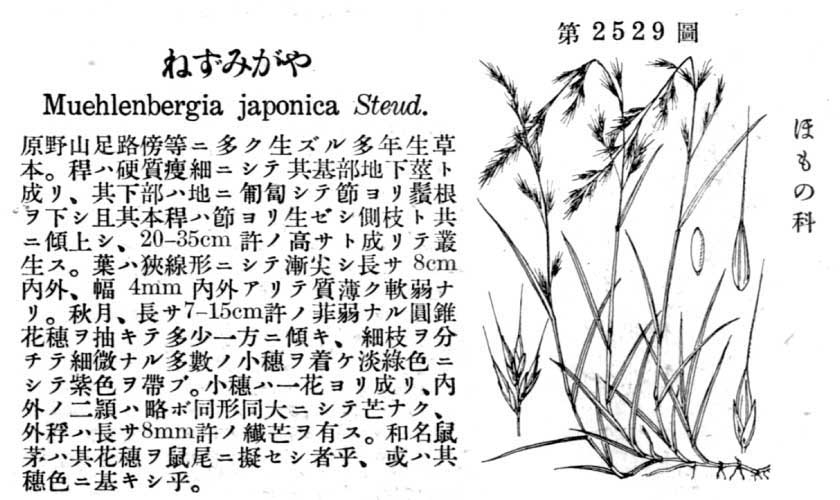 ねずみがや
Muehlenbergia japonica Steud.
原野山足路傍等ニ多ク生ズル多年生草
本。稈ハ硬質瘦細ニシテ其基部地下莖ト
成リ、其下部ハ地ニ匍匐シテ節ヨリ鬚根
ヲ下シ且其本稈ハ節ヨリ生ゼシ側枝ト共
ニ傾上シ、20–35cm 許ノ高サト成リテ叢
生ス。葉ハ狹線形ニシテ漸尖シ長サ 8cm
內外、幅 4mm 內外アリテ質薄ク軟弱ナ
リ。秋月、長サ7–15cm許ノ菲弱ナル圓錐
花穗ヲ抽キテ多少一方ニ傾キ、細枝ヲ分
チテ細微ナル多數ノ小穗ヲ着ケ淡綠色ニ
シテ紫色ヲ帶ブ。小穗ハ一花ヨリ成リ、內
外ノ二穎ハ略ボ同形同大ニシテ芒ナク、
外稃ハ長サ8mm許ノ纖芒ヲ有ス。和名鼠
茅ハ其花穗ヲ鼠尾ニ擬セシ者乎、或ハ其
穗色ニ基キシ乎。
第 2529 圖
ほもの科